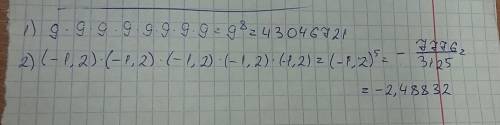 1) 9 · 9 · 9 · 9 · 9 · 9 · 9 · 9 = 9⁸ = 43046721
2) (-1,2) · (-1,2) · (-1,2) · (-1,2) · (-1,2) = (-1,2)⁵ = - 7776/3125 =
= -2,48832